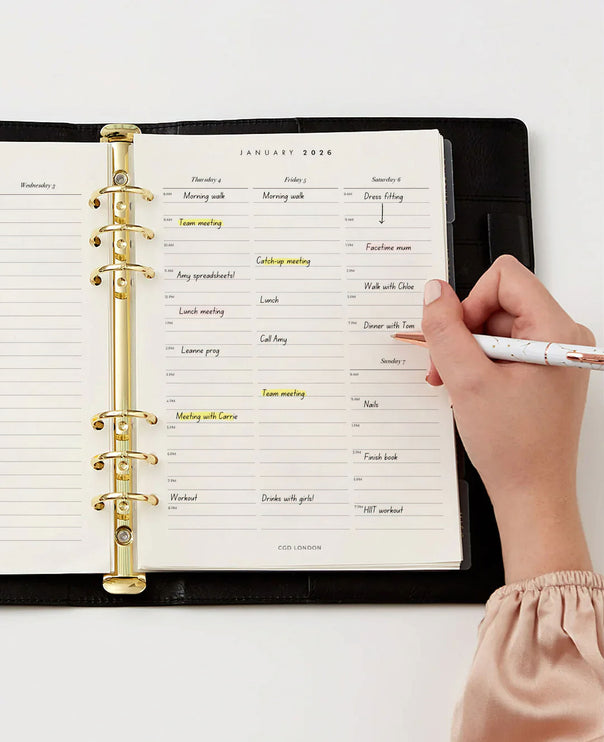 JANUARY 2026
Wednesday 3
Thursday 4
8 AM
Morning walk
9 AM
Team meeting
10 AM
11 AM
Amy spreadsheets!
12 PM
Lunch meeting
1 PM
2 PM
Leanne prog
3 PM
4 PM
Meeting with Carrie
5 PM
6 PM
7 PM
Workout
8 PM
Friday 5
Morning walk
Catch-up meeting
Lunch
Call Amy
Team meeting
Drinks with girls!
Saturday 6
Dress fitting
Facetime mum
Walk with Chloe
Dinner with Tom
Sunday 7
Nails
Finish book
HIIT workout
CGD LONDON